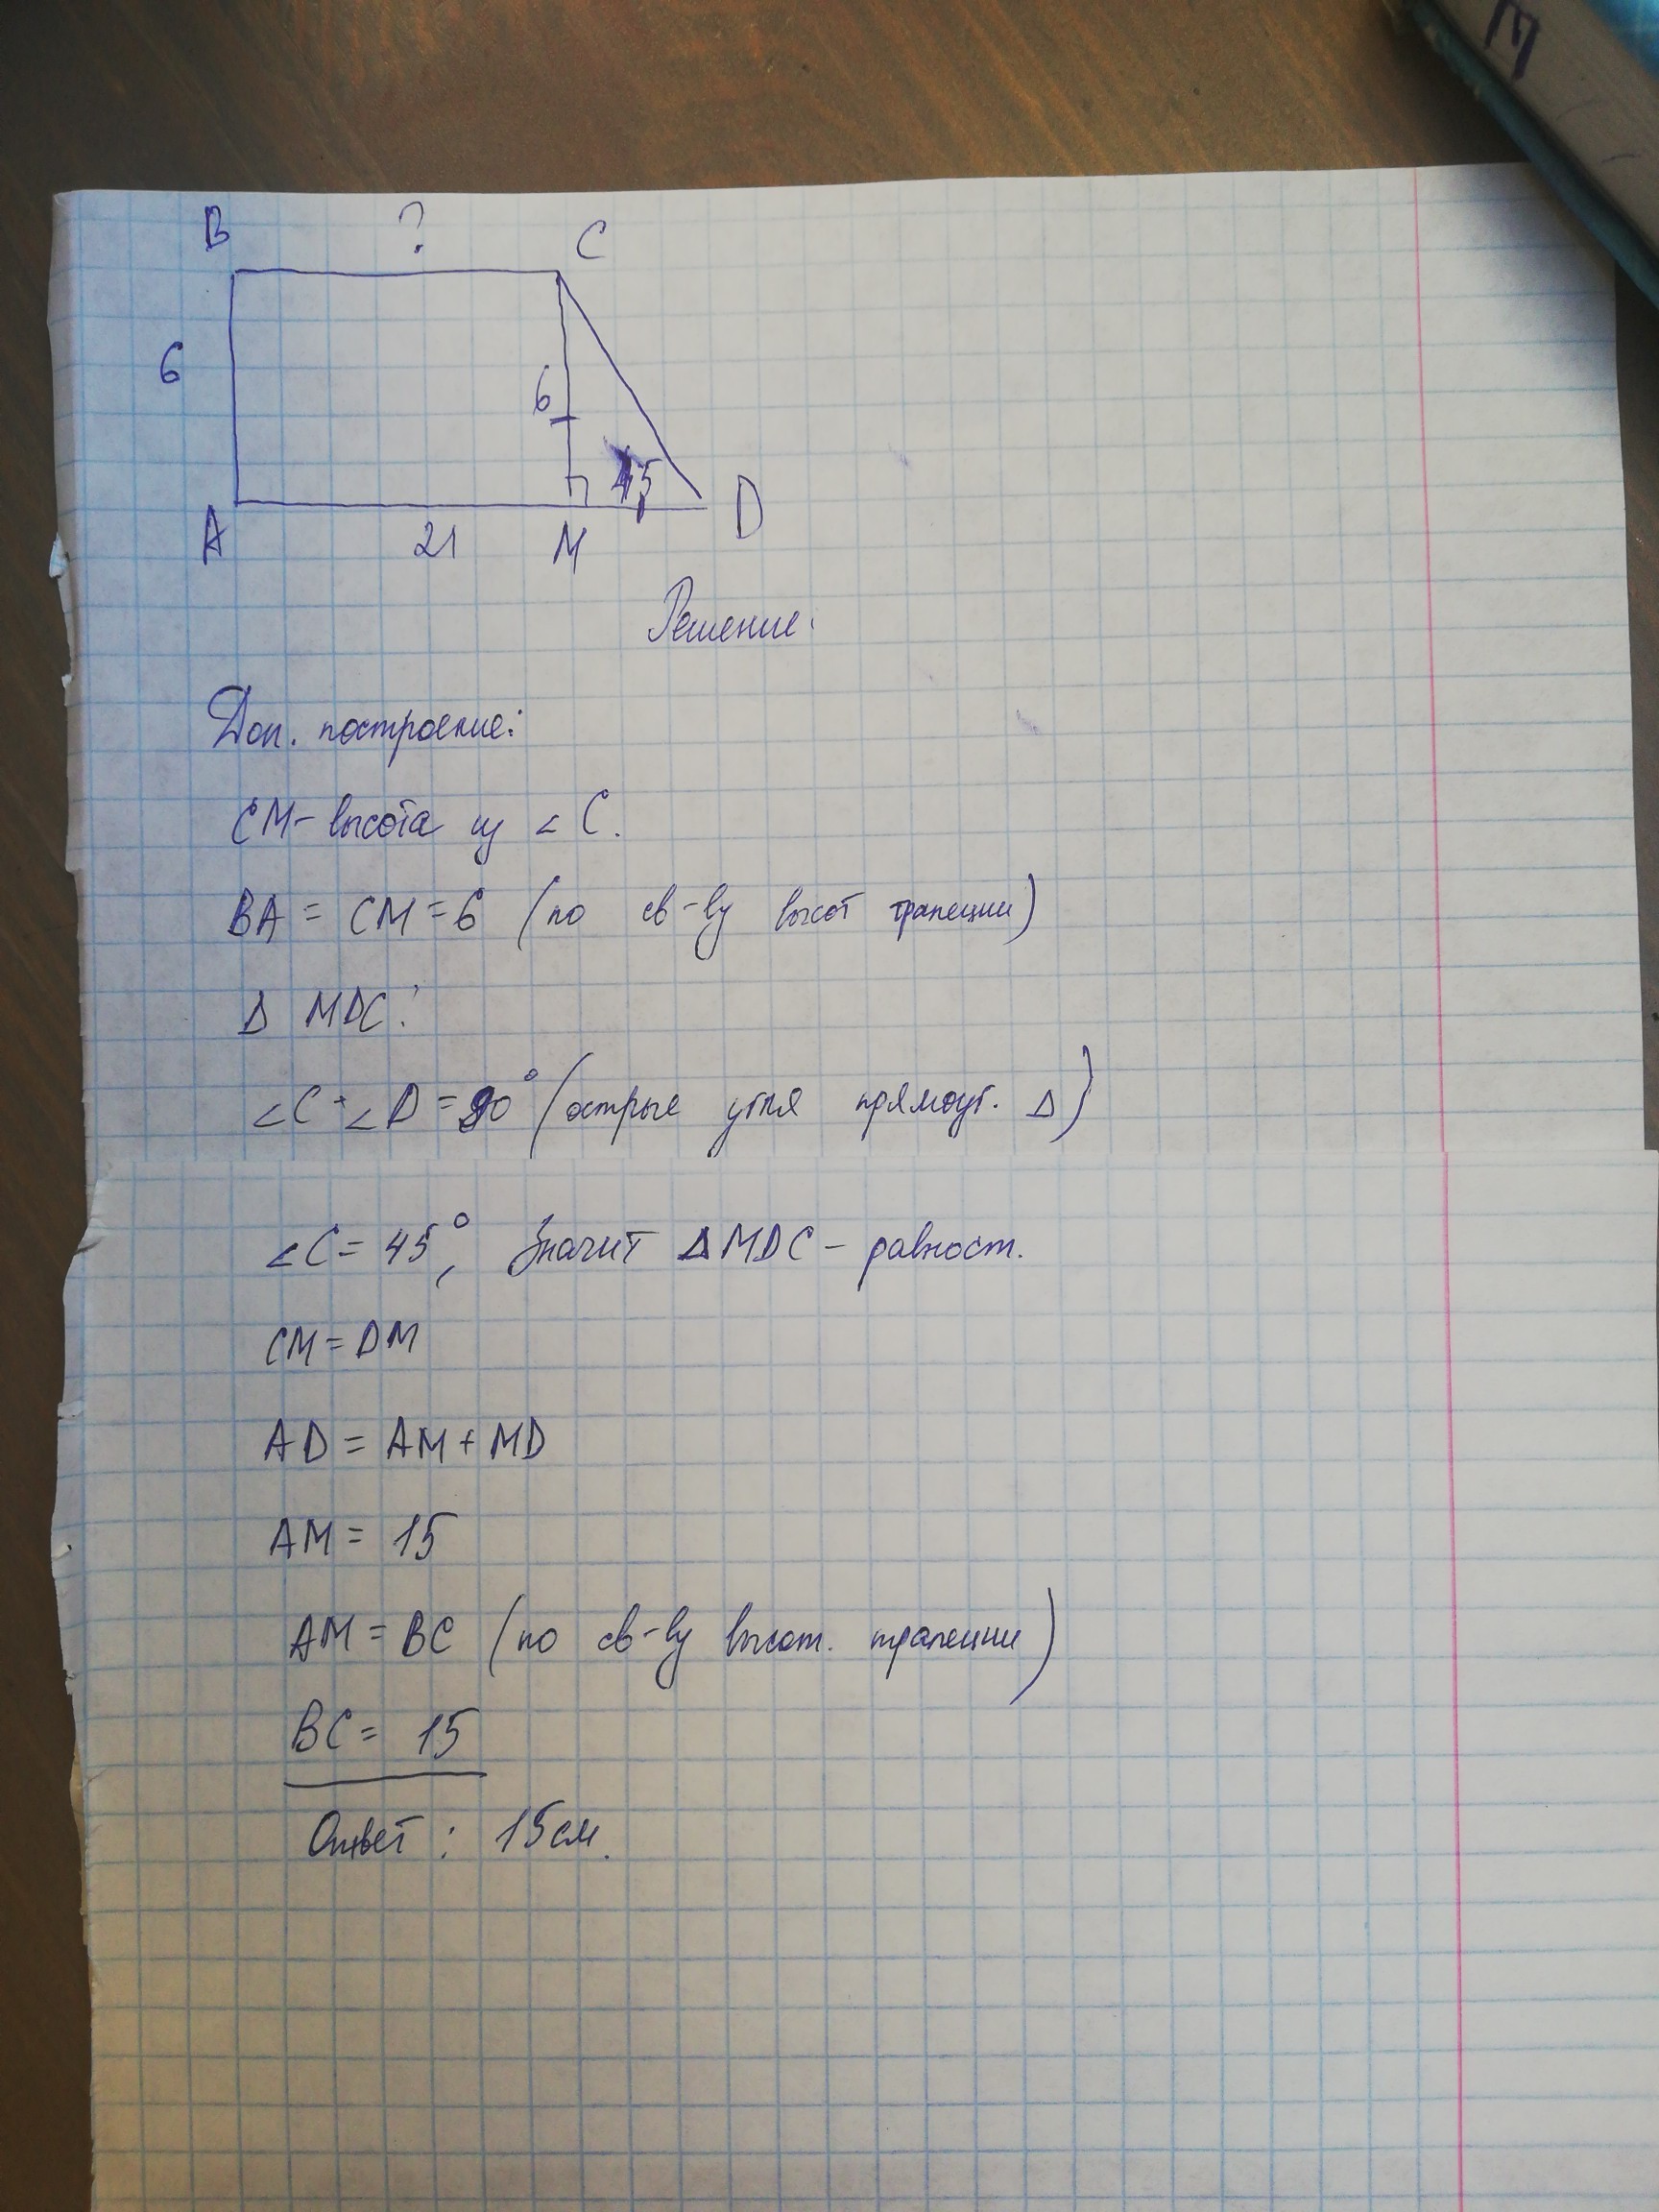 В ? С
6
6
45
А 21 М D
Решение:
Доп. построение:
СМ - высота из ∠ С.
ВА = СМ = 6 (по св-ву высот трапеции)
Δ MDC:
∠C + ∠D = 90° (острые угля прямоуг. Δ)
∠C = 45°, значит ΔMDC - равност.
CM = DM
AD = AM + MD
AM = 15
AM = BC (по св-ву высот. трапеции)
BC = 15
Ответ: 15см.